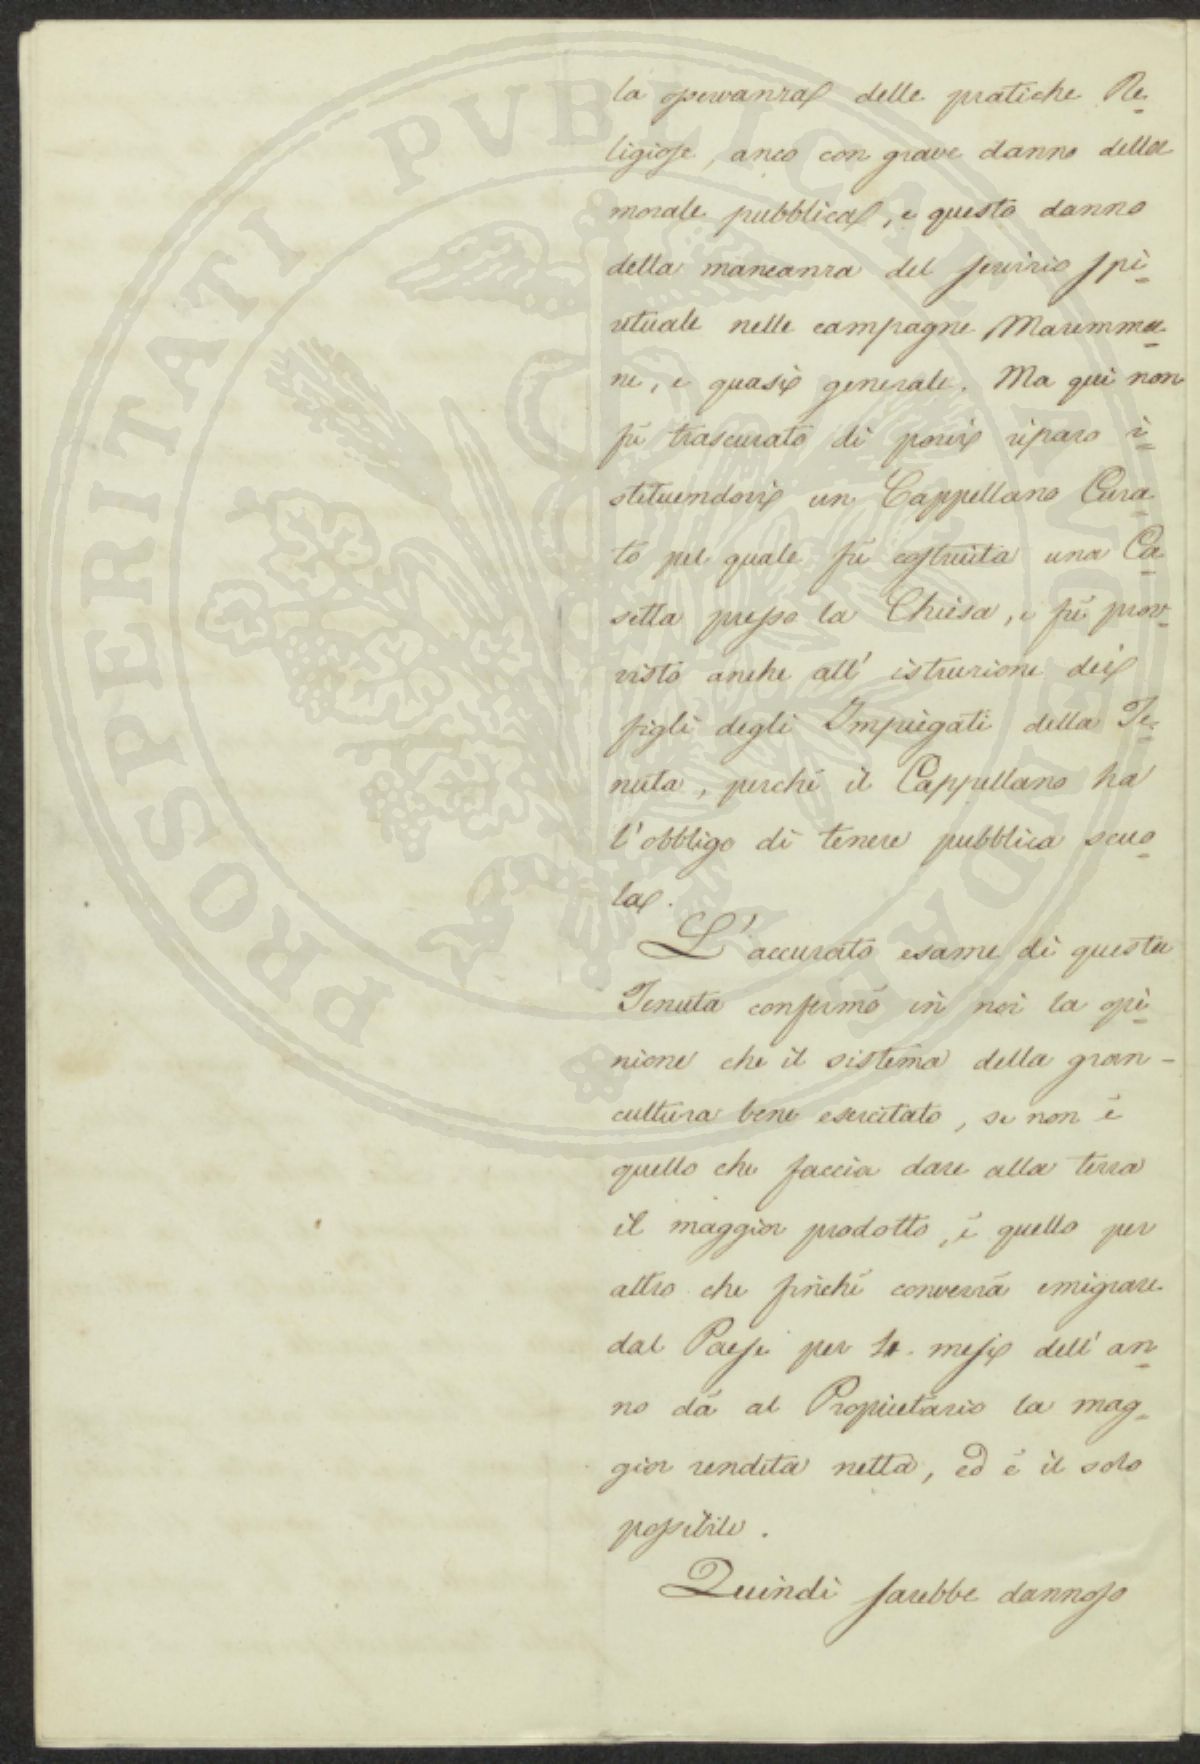 la osservanza delle pratiche Re-
ligiose, anco con grave danno della
morale pubblica, e questo danno
della mancanza del servizio spi-
rituale nelle campagne Maremma-
ne, è quasi generale. Ma qui non
fù trascurato di porvi riparo i-
stituendovi un Cappellano Cura-
to pel quale fù costruita una Ca-
setta presso la Chiesa, e fù prov-
visto anche all' istruzione dei
figli degli Impiegati della Te-
nuta, perchè il Cappellano ha
l'obbligo di tenere pubblica scuo-
la.
L'accurato esame di questa
Tenuta confermò in noi la opi-
nione che il sistema della gran-
cultura bene esercitato, se non è
quello che faccia dare alla terra
il maggior prodotto, è quello per
altro che finchè converrà emigrare
dal Paese per mesi dell' an-
no dà al Proprietario la mag-
gior rendita netta, ed è il solo
possibile.
Quindi sarebbe dannoso
PROSPERITATI PVBLICAE AVGENDAE